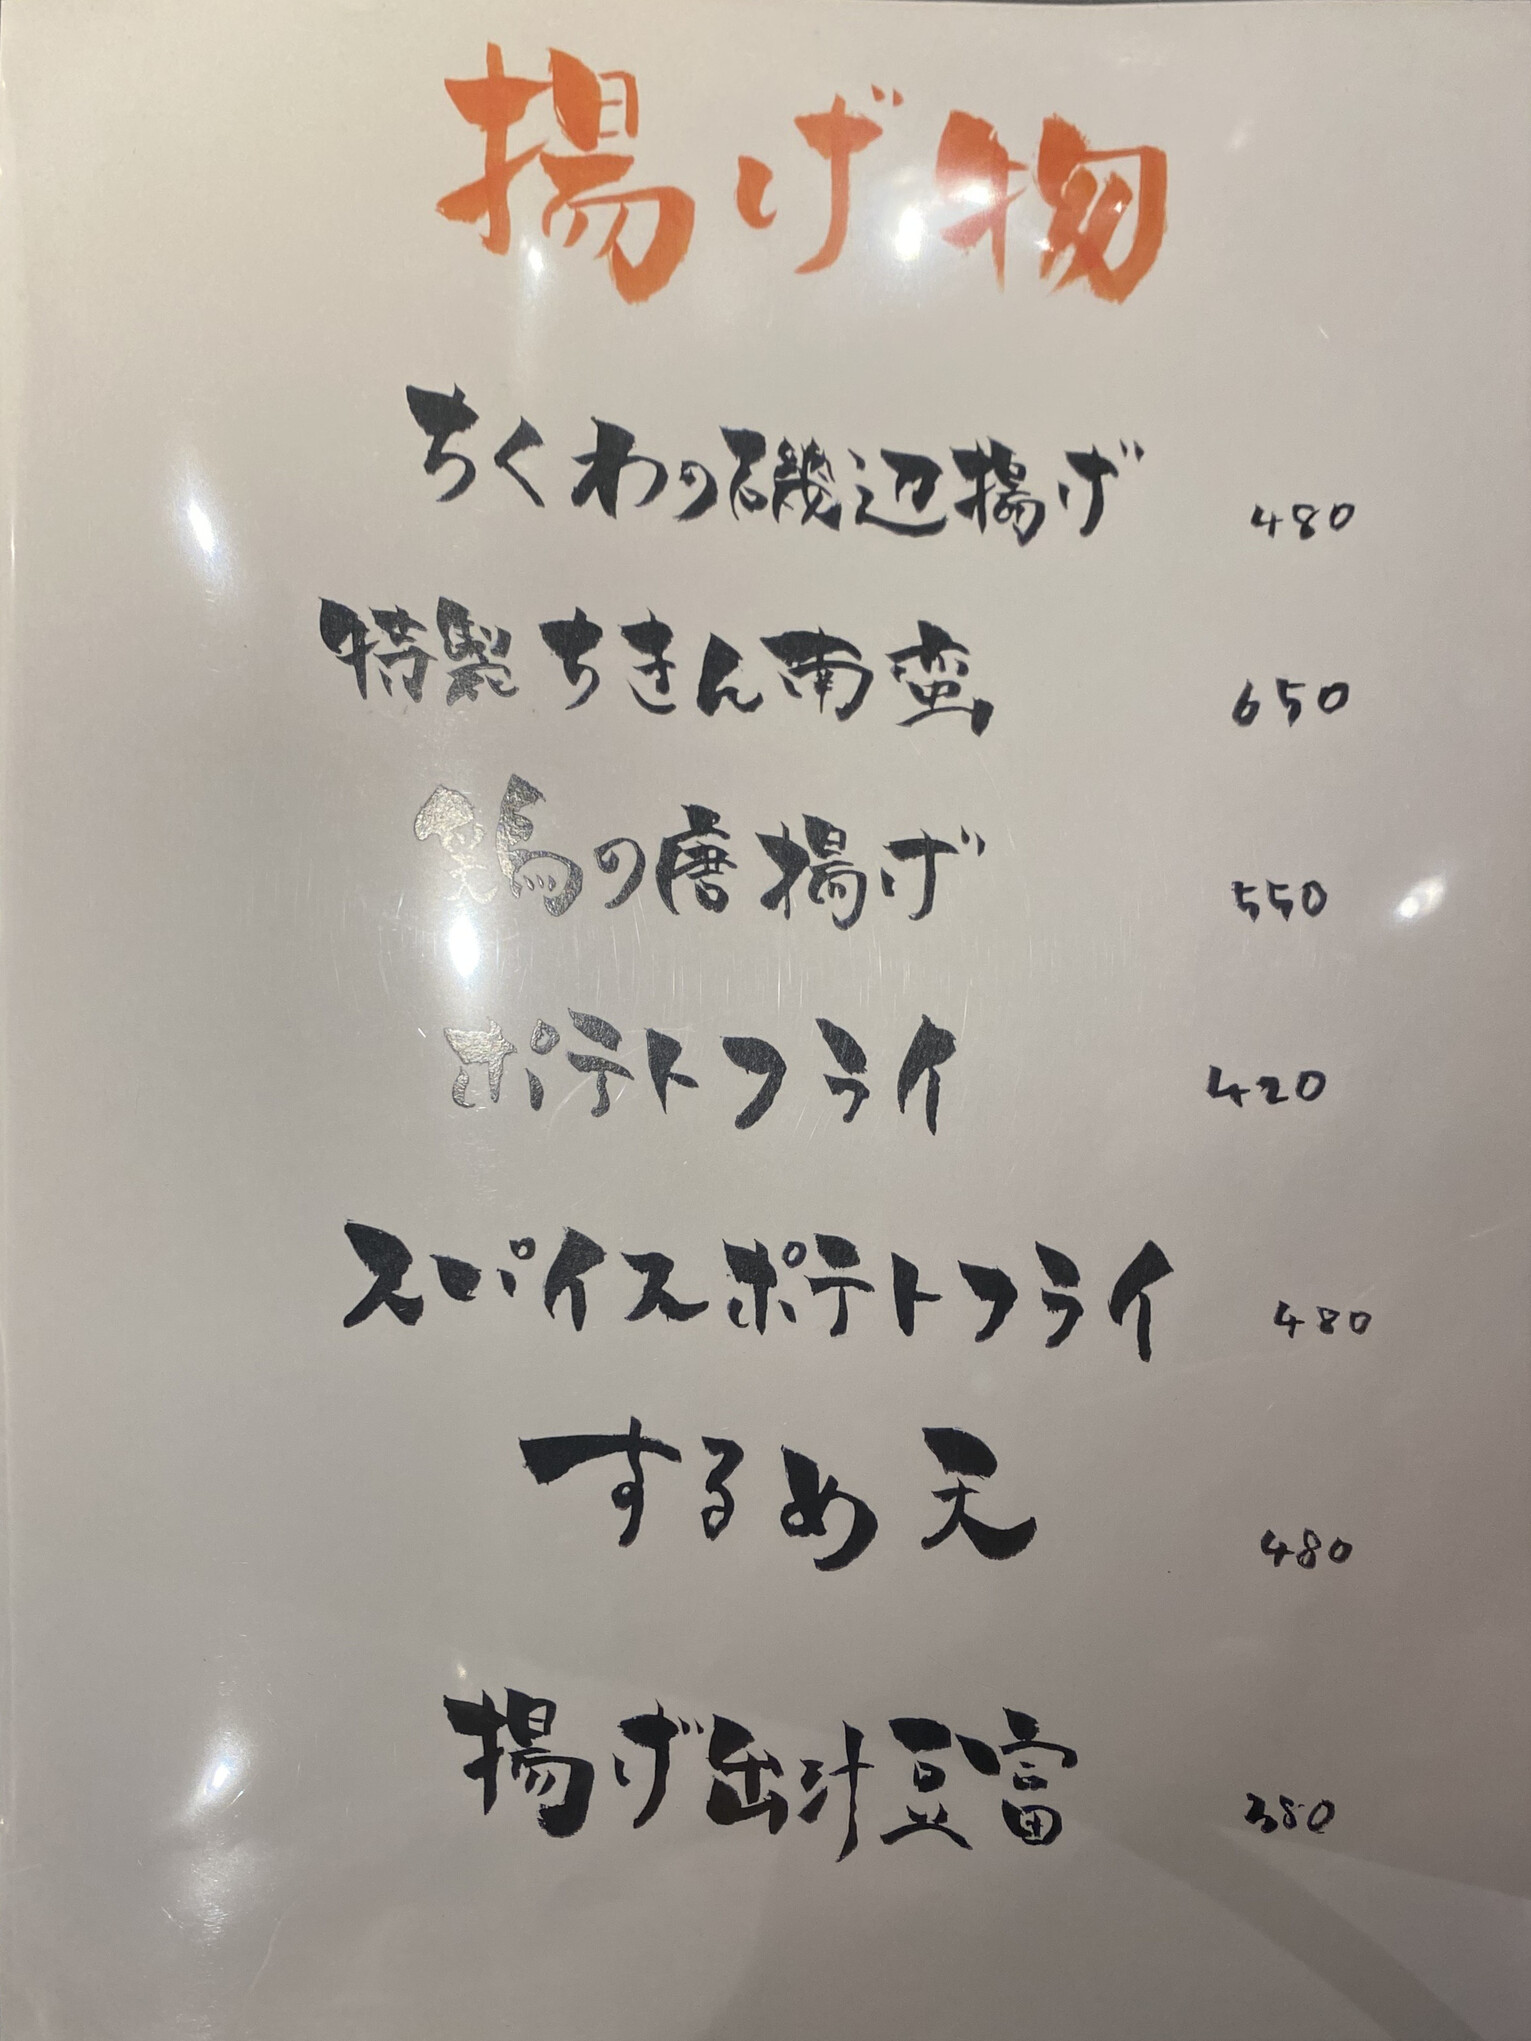 揚げ物
ちくわの磯辺揚げ 480
特製ちきん南蛮 650
鶏の唐揚げ 550
ポテトフライ 420
スパイスポテトフライ 480
するめ天 480
揚げ出汁豆富 380